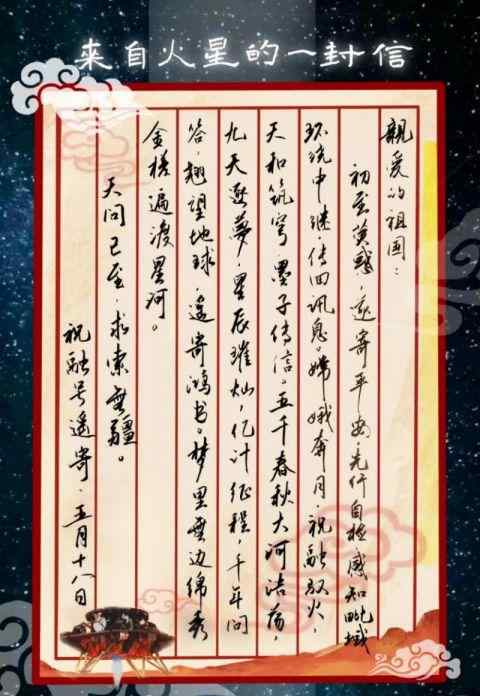 来自火星的一封信
親爱的祖国：
初至荧惑，遥寄平安，先行自检感知毗域
环绕中继，传回讯息。嫦娥奔月，祝融驭火，
天和筑穹，墨子传信。五千春秋大河浩荡，
九天逐梦，星辰璀灿，亿计征程，千年问
答，翘望地球，遥寄鸿书。梦里無边绵秀
金槎遍渡星河。
天问已至，求索無疆。
祝融号遥寄，五月十八日